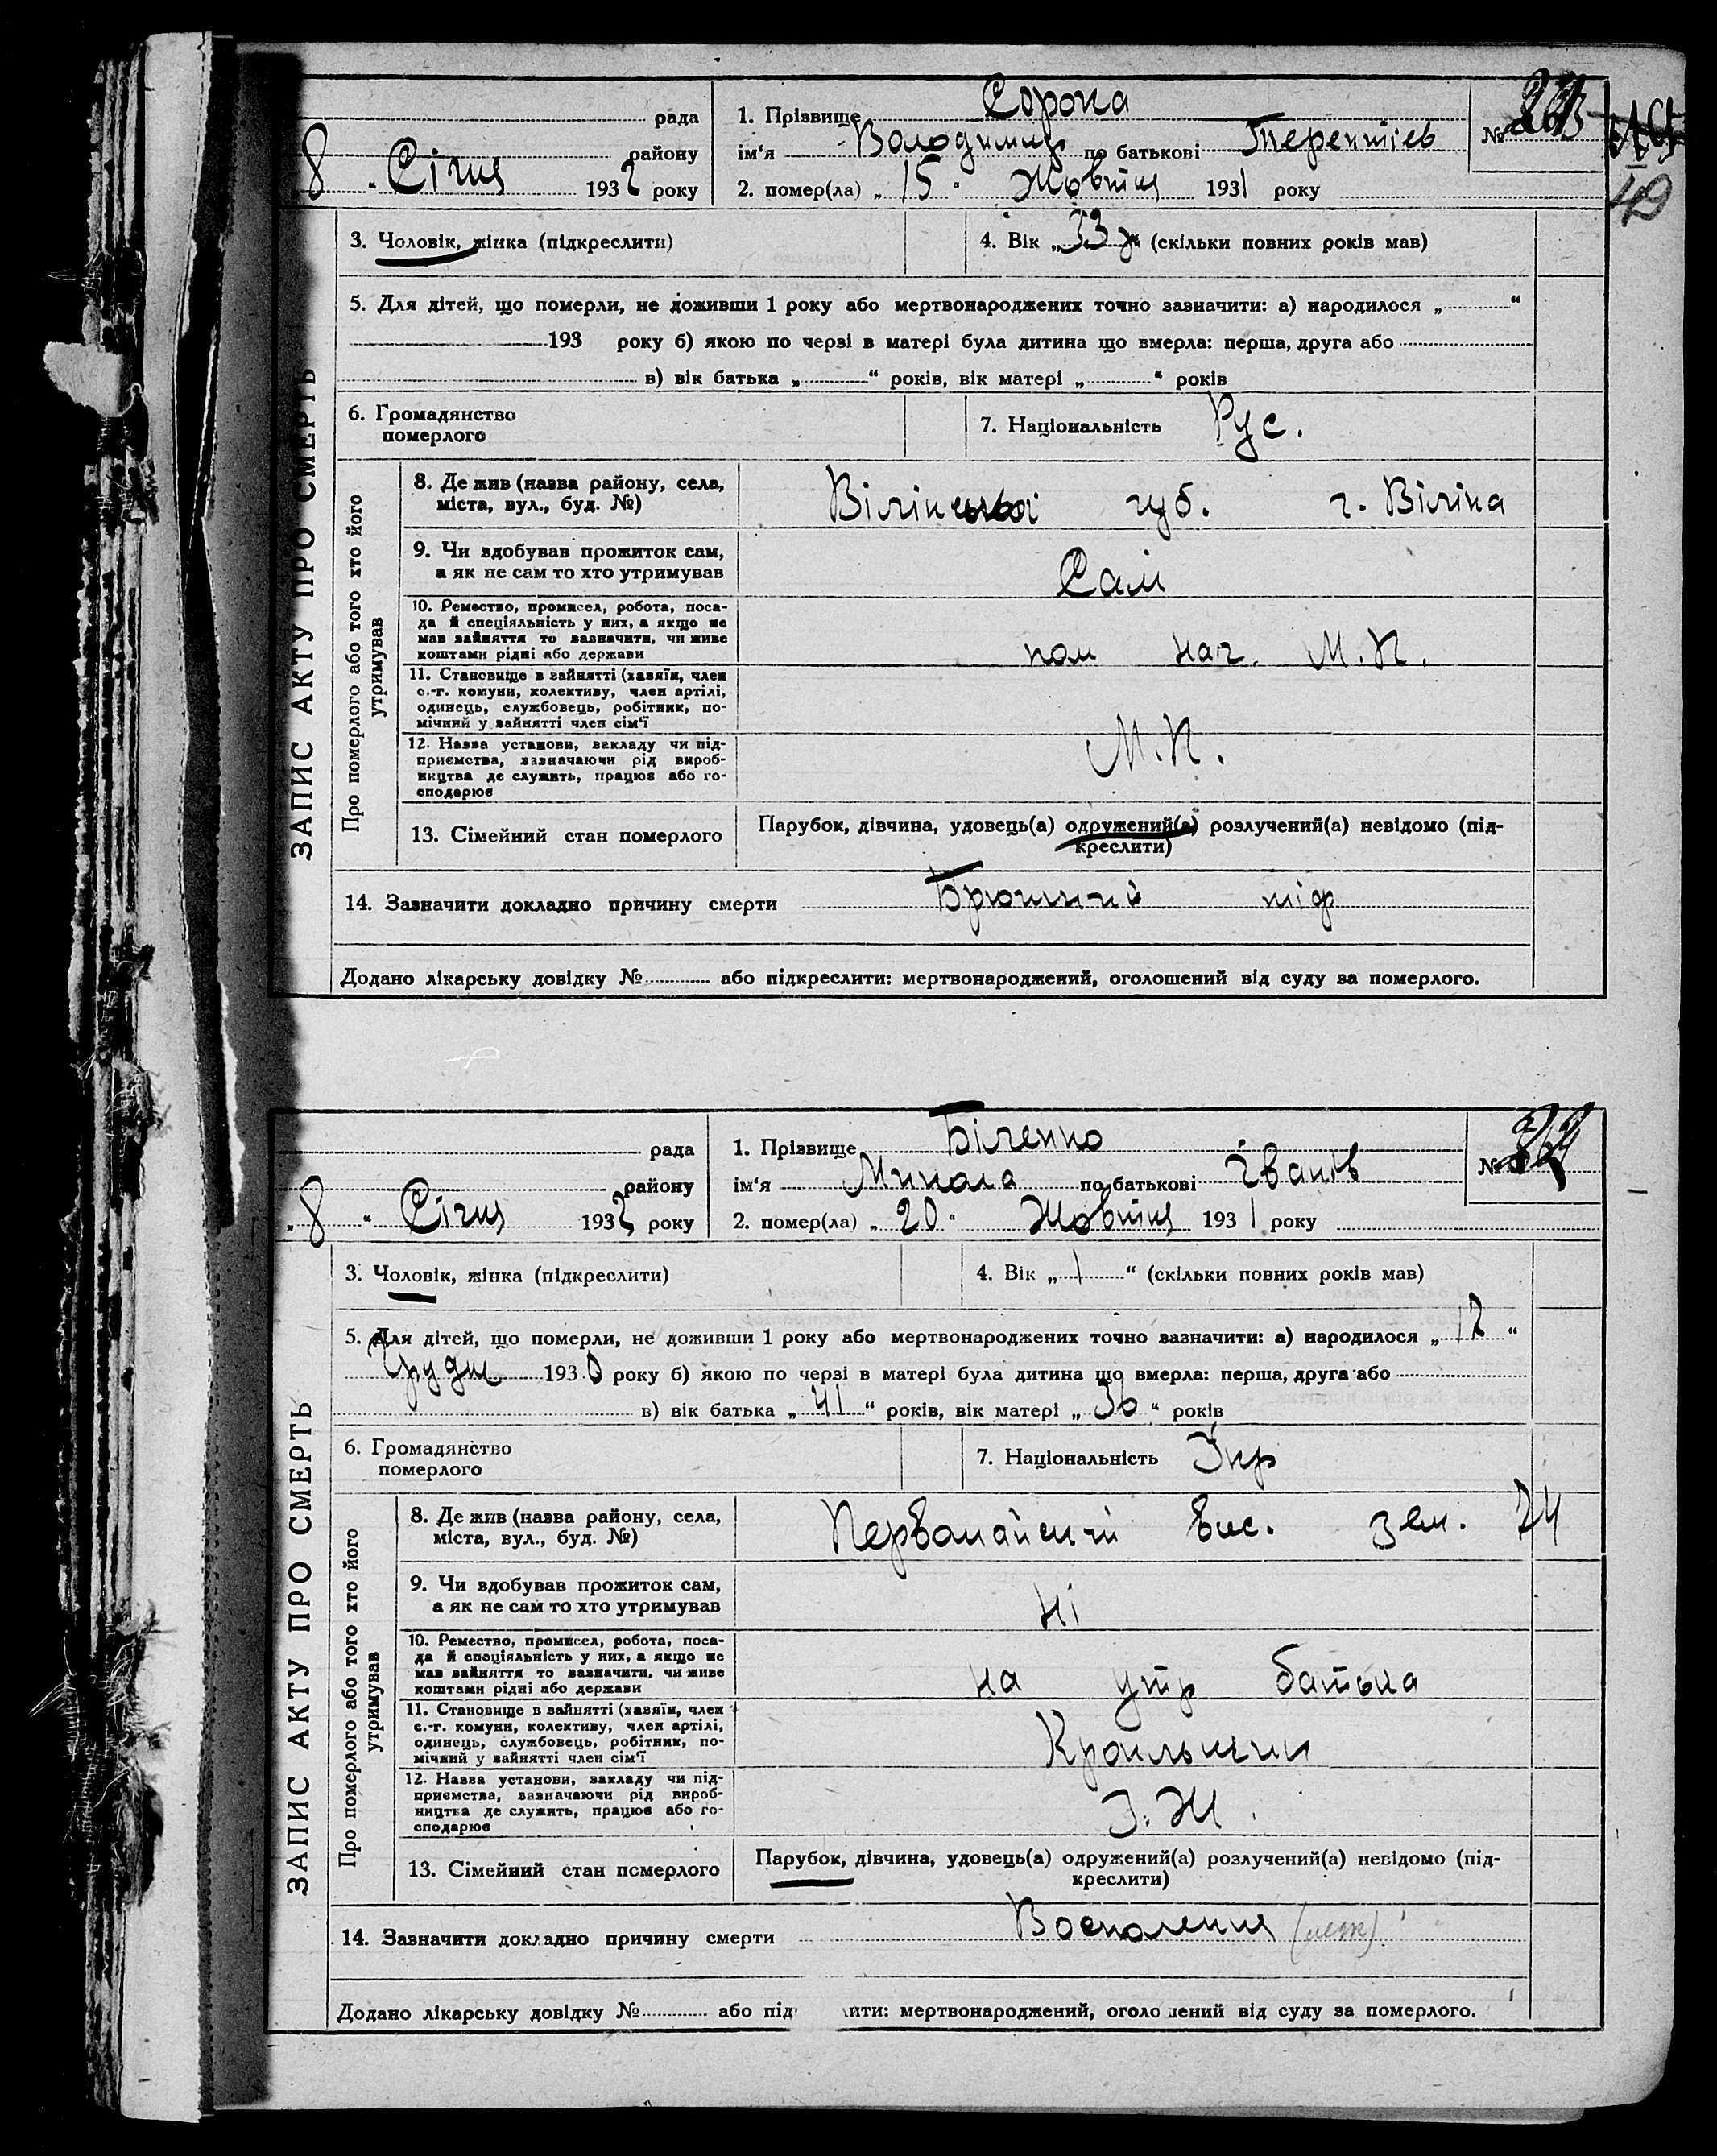 рада
району
8 " Січня 1932 року
1. Прізвище Сорока
ім‘я Володимир по батькові Терентіев
№
2. помер(ла) „ 15 " Жовтня 1931 року
49
3. Чоловік, жінка (підкреслити)
4. Вік „ 33 “ (скільки повних років мав)
5. Для дітей, що померли, не доживши 1 року або мертвонароджених точно зазначити: а) народилося „ “
193 року б) якою по черзі в матері була дитина що вмерла: перша, друга або
в) вік батька „ “ років, вік матері „ “ років
6. Громадянство
померлого
7. Національність Рус.
ЗАПИС АКТУ ПРО СМЕРТЬ
Про померлого або того хто його
утримував
8. Де жив (назва району, села,
міста, вул., буд. №)
Вілінської губ. г. Віліна
9. Чи здобував прожиток сам,
а як не сам то хто утримував
Сам
10. Ремество, промисел, робота, поса-
да й спеціяльність у них, а якщо не
мав зайняття то зазначити, чи живе
коштами рідні або держави
пом нач. М.П.
11. Становище в зайнятті (хазяїн, член
с.-г. комуни, колективу, член артілі,
одинець, службовець, робітник, по-
мічний у зайнятті член сім‘ї
12. Назва установи, закладу чи під-
приємства, зазначаючи рід вироб-
ництва де служить, працює або го-
сподарює
М.П.
13. Сімейний стан померлого
Парубок, дівчина, удовець(а) одружений(а) розлучений(а) невідомо (під-
креслити)
14. Зазначити докладно причину смерти Брюшний тіф
Додано лікарську довідку № або підкреслити: мертвонароджений, оголошений від суду за померлого.
рада
району
„ 8 “ Січня 1932 року
1. Прізвище Біленко
ім‘я Микола по батькові Іванів
№
2. помер(ла) „ 20 “ Жовтня 1931 року
3. Чоловік, жінка (підкреслити)
4. Вік „ 1 “ (скільки повних років мав)
5. Для дітей, що померли, не доживши 1 року або мертвонароджених точно зазначити: а) народилося „ 12 “
Грудня 1930 року б) якою по черзі в матері була дитина що вмерла: перша, друга або
в) вік батька „ 41 “ років, вік матері „ 36 “ років
6. Громадянство
померлого
7. Національність Укр
ЗАПИС АКТУ ПРО СМЕРТЬ
Про померлого або того хто його
утримував
8. Де жив (назва району, села,
міста, вул., буд. №)
Первомайский вис. зем. 74
9. Чи здобував прожиток сам,
а як не сам то хто утримував
Ні
10. Ремество, промисел, робота, поса-
да й спеціяльність у них, а якщо не
мав зайняття то зазначити, чи живе
коштами рідні або держави
на утр батька
11. Становище в зайнятті (хазяїн, член
с.-г. комуни, колективу, член артілі,
одинець, службовець, робітник, по-
мічний у зайнятті член сім‘ї
12. Назва установи, закладу чи під-
приємства, зазначаючи рід вироб-
ництва де служить, працює або го-
сподарює
З.Ж.
13. Сімейний стан померлого
Парубок, дівчина, удовець(а) одружений(а) розлучений(а) невідомо (під-
креслити)
14. Зазначити докладно причину смерти Воспаления
Додано лікарську довідку № або під ити: мертвонароджений, оголо ений від суду за померлого.